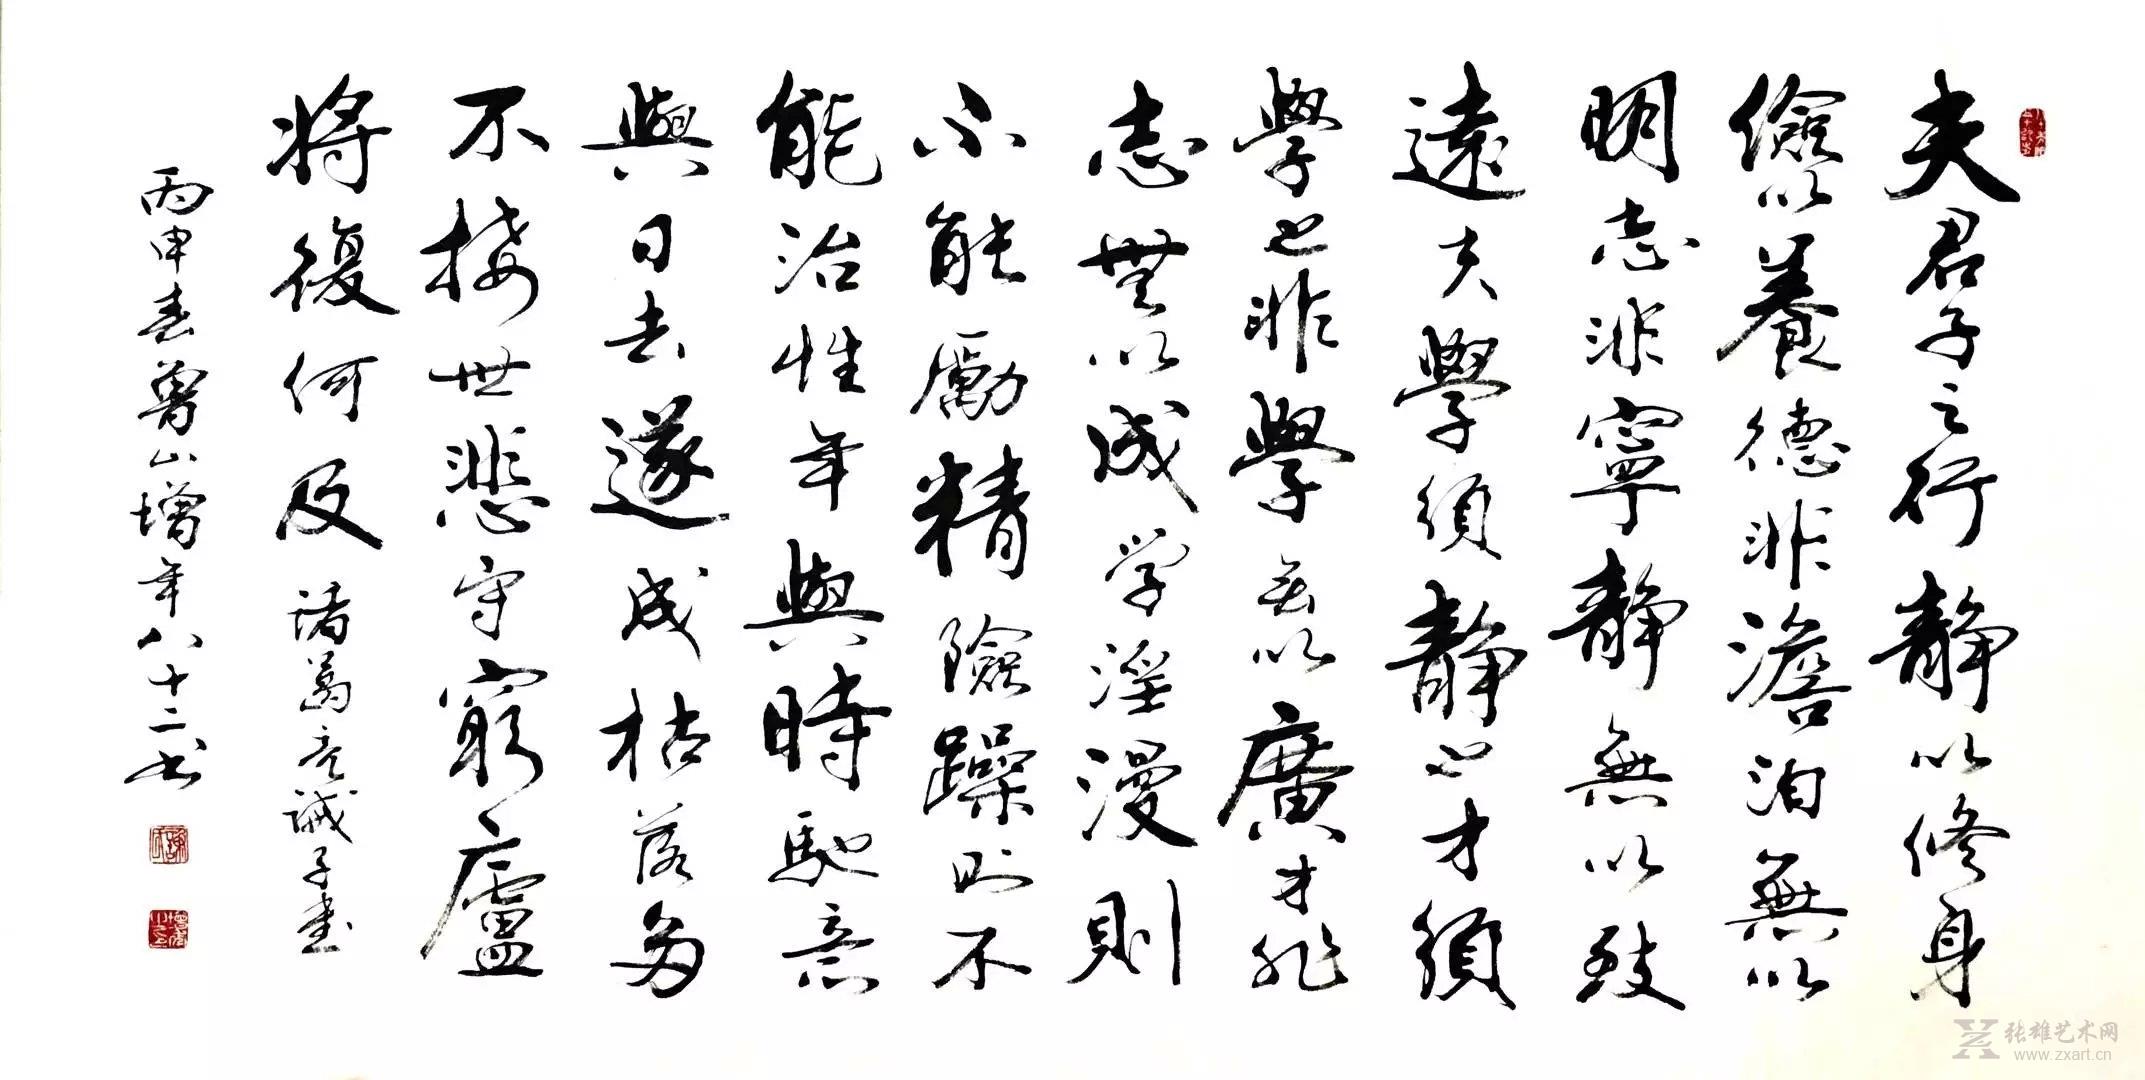 夫君子之行静以修身
儉以養德非澹泊無以
明志非寧静無以致
遠夫學須静也才須
學也非學无以廣才非
志無以成学淫漫則
不能勵精險躁則不
能治性年與時馳意
與日去遂成枯落多
不接世悲守窮廬
将復何及 諸葛亮誡子書
丙申春魯山增年八十二书
张雄艺术网
www.zxart.cn